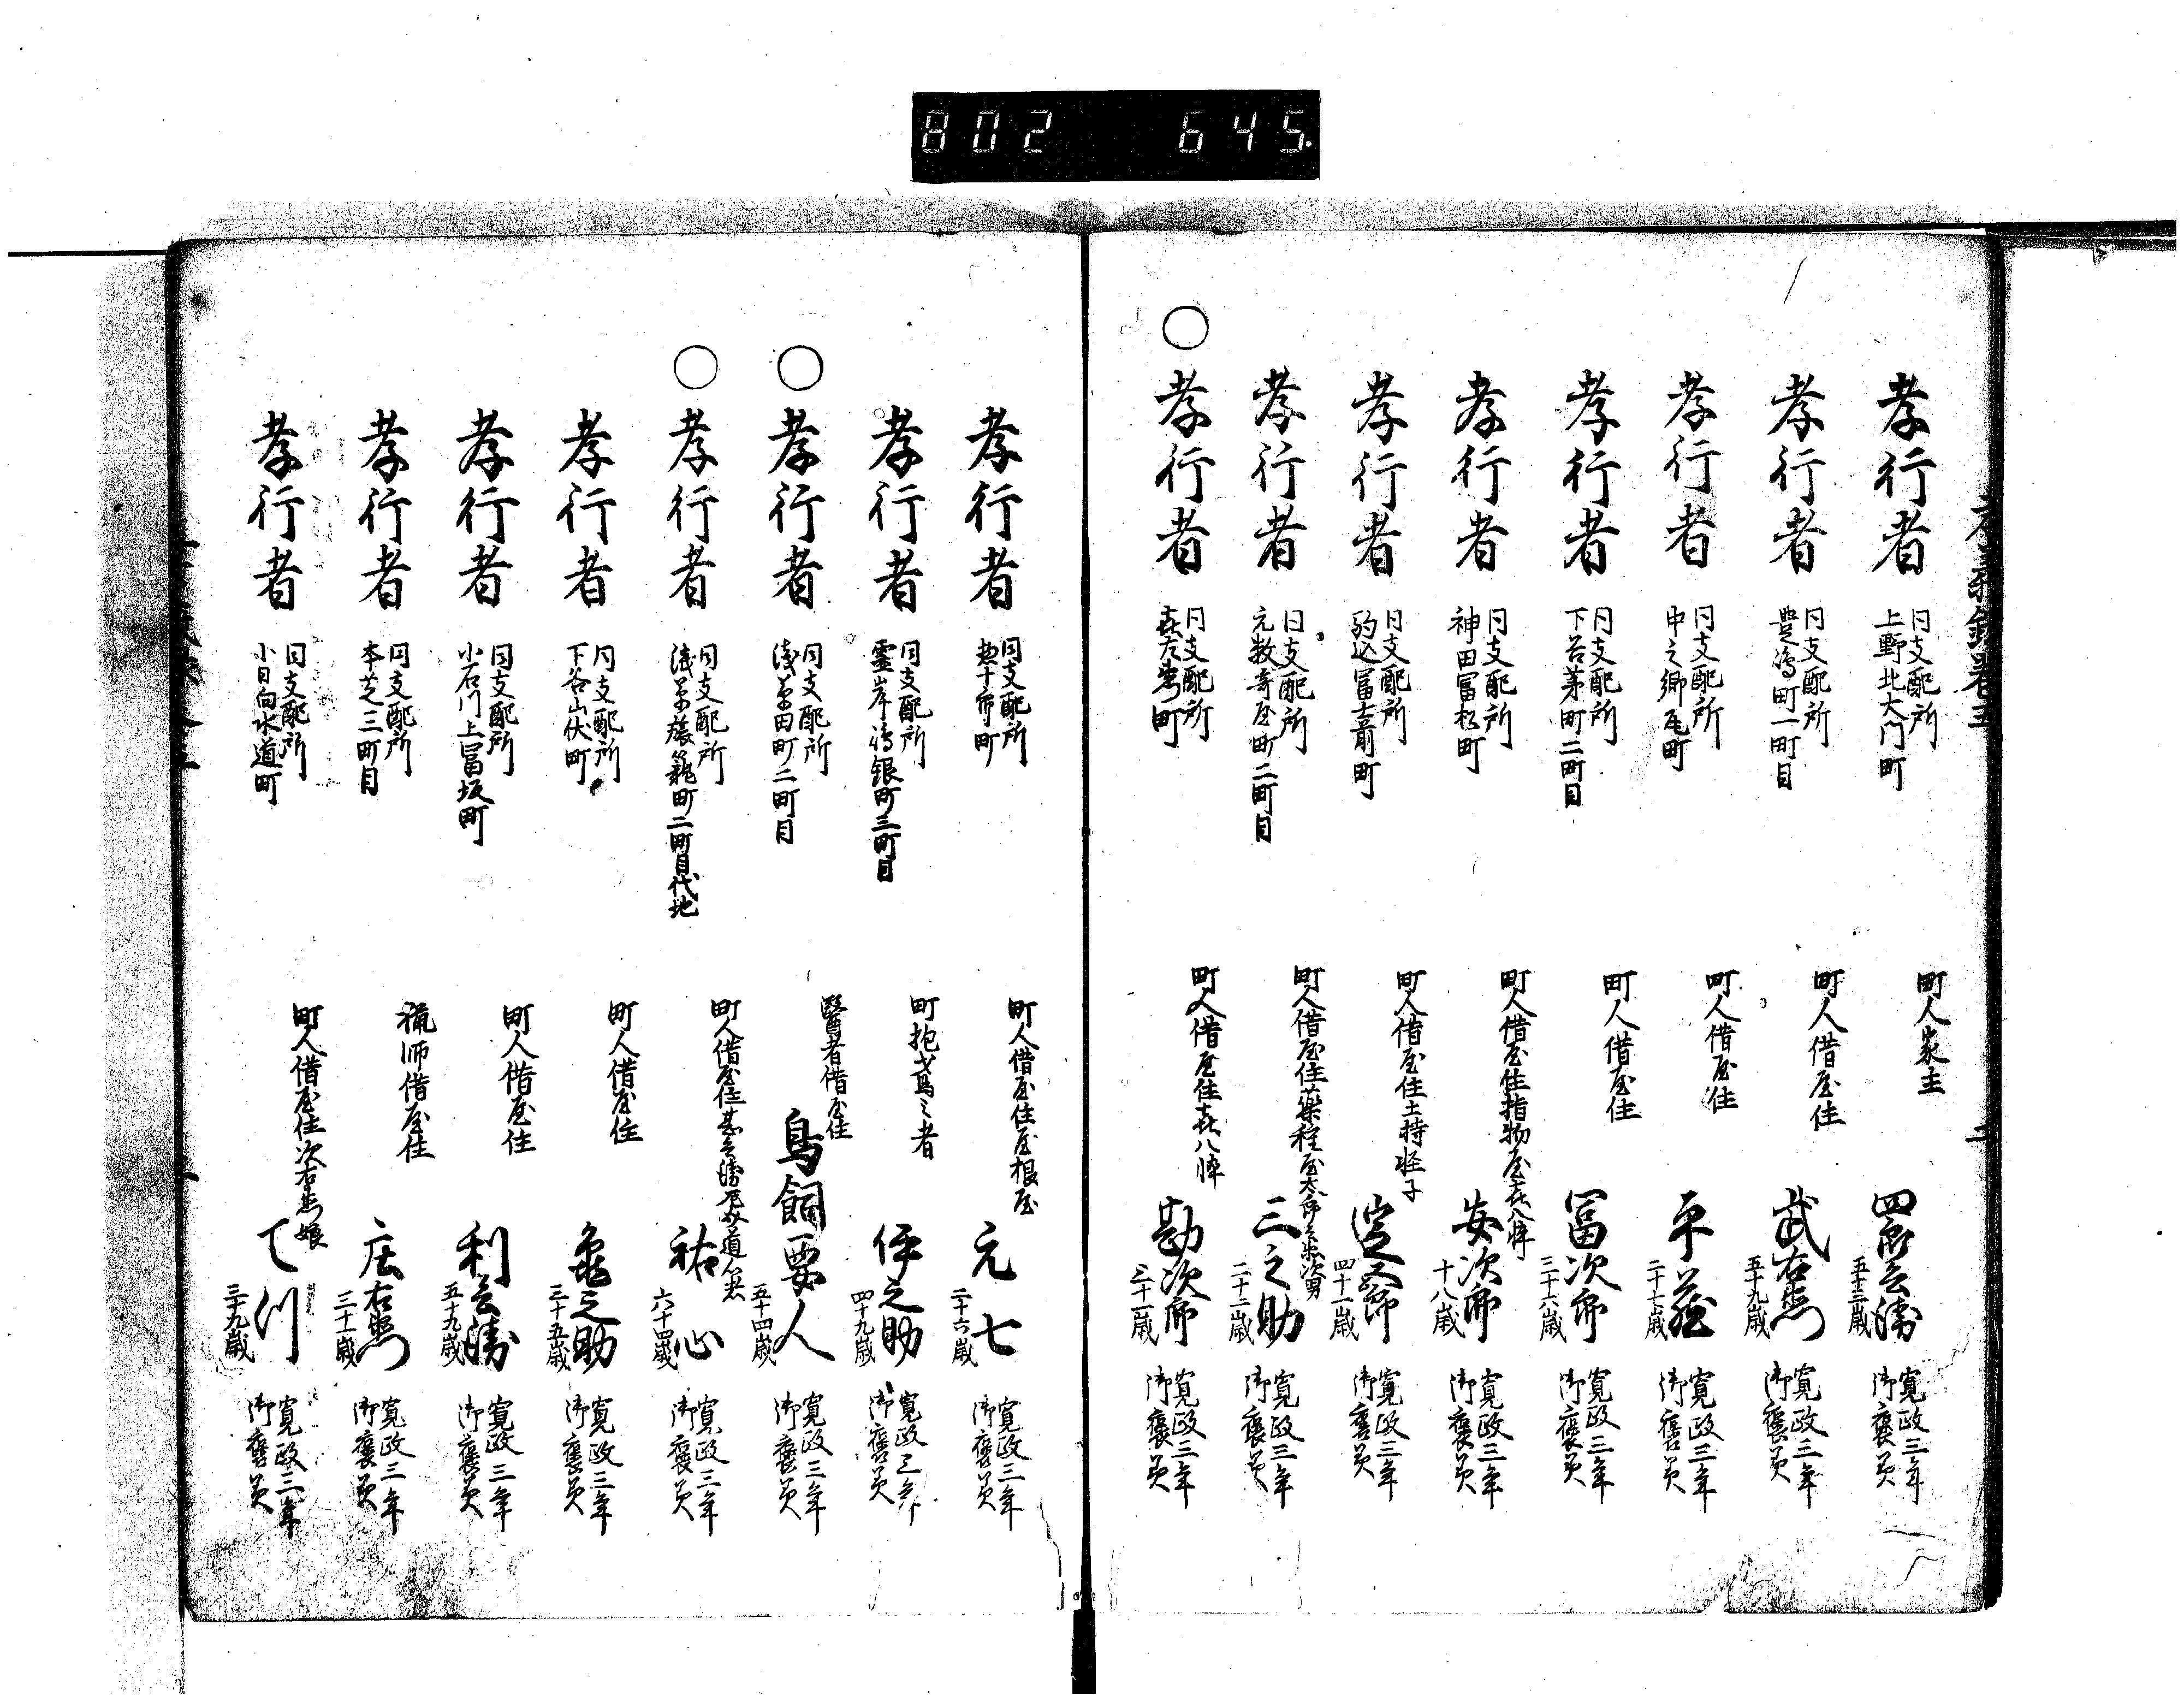 802 645
孝行者
同支配所
上野北大門町
町人家主
四郎兵衛
五十三歳
寛政三年
御褒美
孝行者
同支配所
豊嶋町一町目
町人借屋住
武右衛門
五十九歳
寛政三年
御褒美
孝行者
同支配所
中之郷瓦町
町人借屋住
平蔵
二十七歳
寛政三年
御褒美
孝行者
同支配所
下谷茅町二町目
町人借屋住
冨次郎
三十六歳
寛政三年
御褒美
孝行者
同支配所
神田冨松町
町人借屋住指物屋喜八悴
安次郎
十八歳
寛政三年
御褒美
孝行者
同支配所
駒込冨士前町
町人借屋住土持
四十一歳
寛政三年
御褒美
孝行者
同支配所
元数寄屋町二町目
町人借屋住薬種屋太郎兵衛次男
三之助
二十二歳
寛政三年
御褒美
○
孝行者
同支配所
喜左衛門町
町人借屋住喜八悴
勘次郎
三十一歳
寛政三年
御褒美
孝行者
同支配所
甚十郎町
町人借屋住屋根屋
元七
二十六歳
寛政三年
御褒美
孝行者
同支配所
霊岸嶋銀町三町目
町抱鳶之者
伊之助
四十九歳
寛政三年
御褒美
○
孝行者
同支配所
浅草田町二町目
醫者借屋住
鳥飼要人
五十四歳
寛政三年
御褒美
○
孝行者
同支配所
浅草旅籠町二町目代地
町人借屋住甚兵衛店道心者
祐心
六十四歳
寛政三年
御褒美
孝行者
同支配所
下谷山伏町
町人借屋住
亀之助
三十五歳
寛政三年
御褒美
孝行者
同支配所
小石川上冨坂町
町人借屋住
利兵衛
五十九歳
寛政三年
御褒美
孝行者
同支配所
本芝三町目
猟師借屋住
庄右衛門
三十一歳
寛政三年
御褒美
孝行者
同支配所
小日向水道町
町人借屋住次右衛門娘
てつ
三十九歳
寛政三年
御褒美